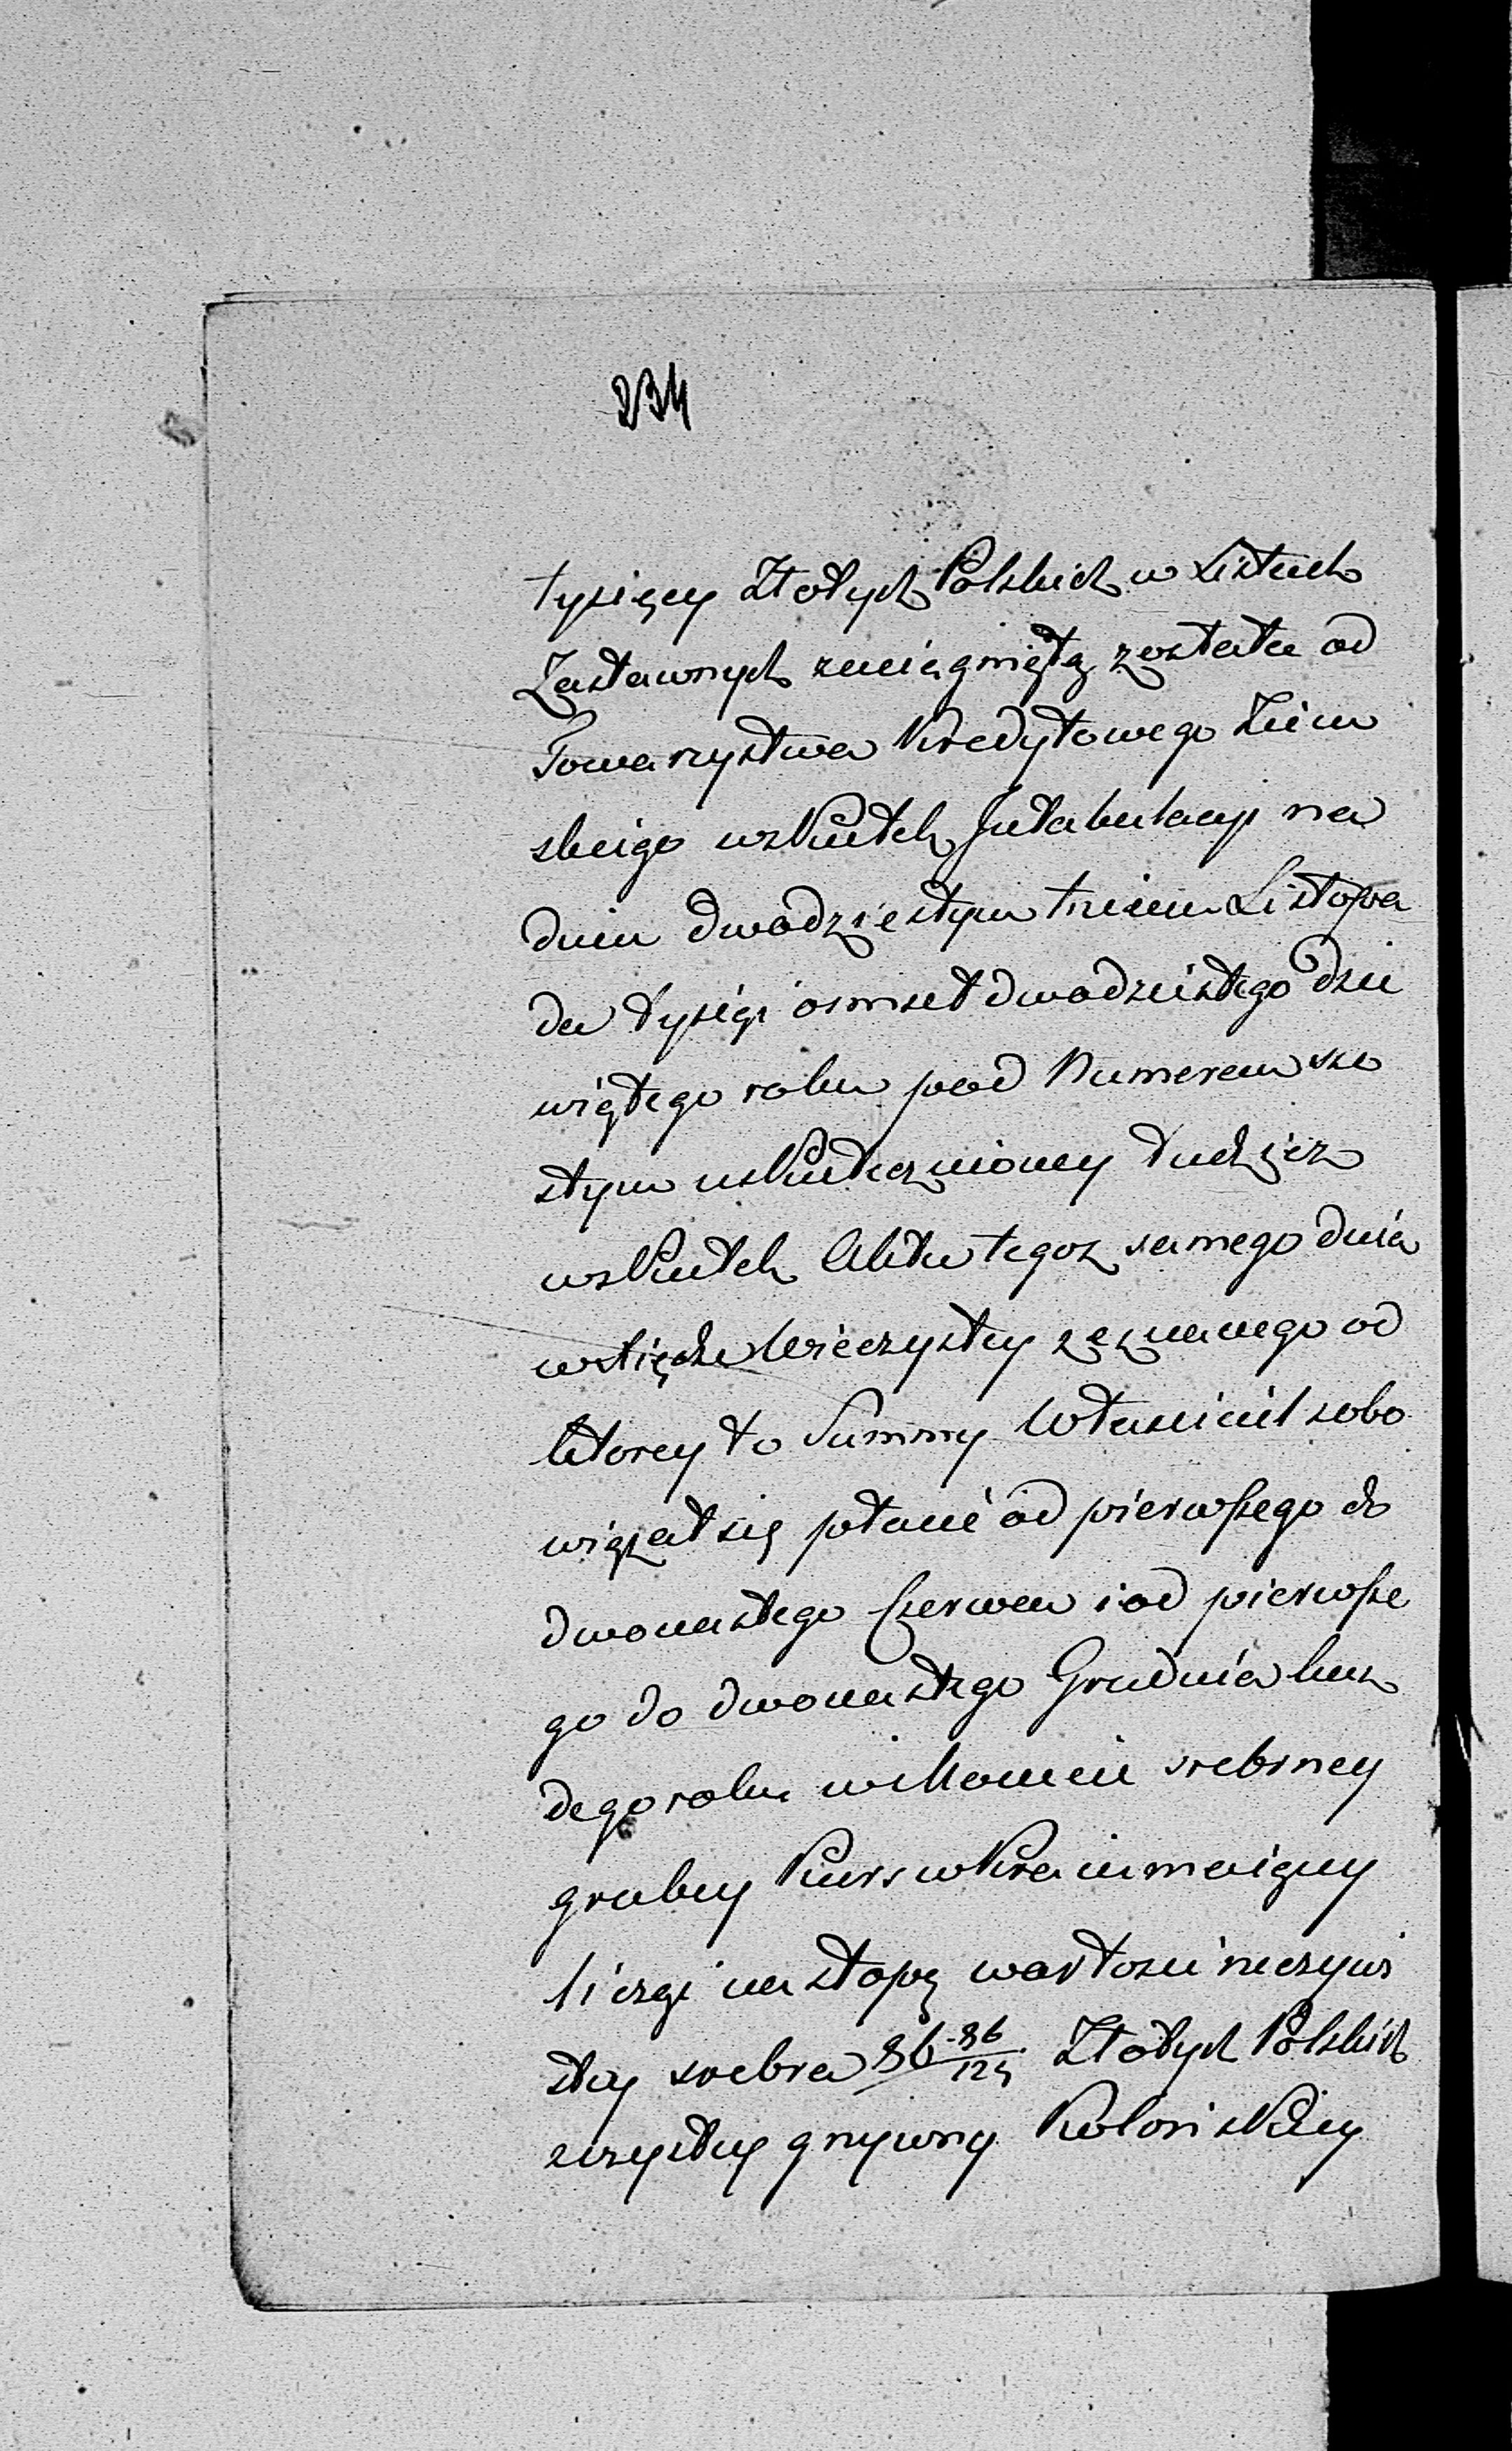 234
tysięcy Złotych Polskich w Listach
Zastawnych zaciągniętą została od
Towarzystwa Kredytowego Ziem
skiego wskutek Intabulacyi na
dniu dwudziestym trzecim Listopa
da tysiąc ośmset dwudziestego dzie
wiątego roku pod Numerem szo
stym uskutecznioney tudzież
wskutek Aktu tegoż samego dnia
w Xiędze Wieczystey zeznanego od
ktorey to Summy Właściciel zobo
wiązał się płacić od pierwszego do
dwonastego Czerwca i od pierwsze
go do dwonastego Grudnia każ
dego roku w Monecie srebrney
grubey Kurs w Kraiu maiącey
licząc na stopę wartości rzeczywi
stey srebra 86 86/125 Złotych Polskich
czystey grzywny Kolońskiey